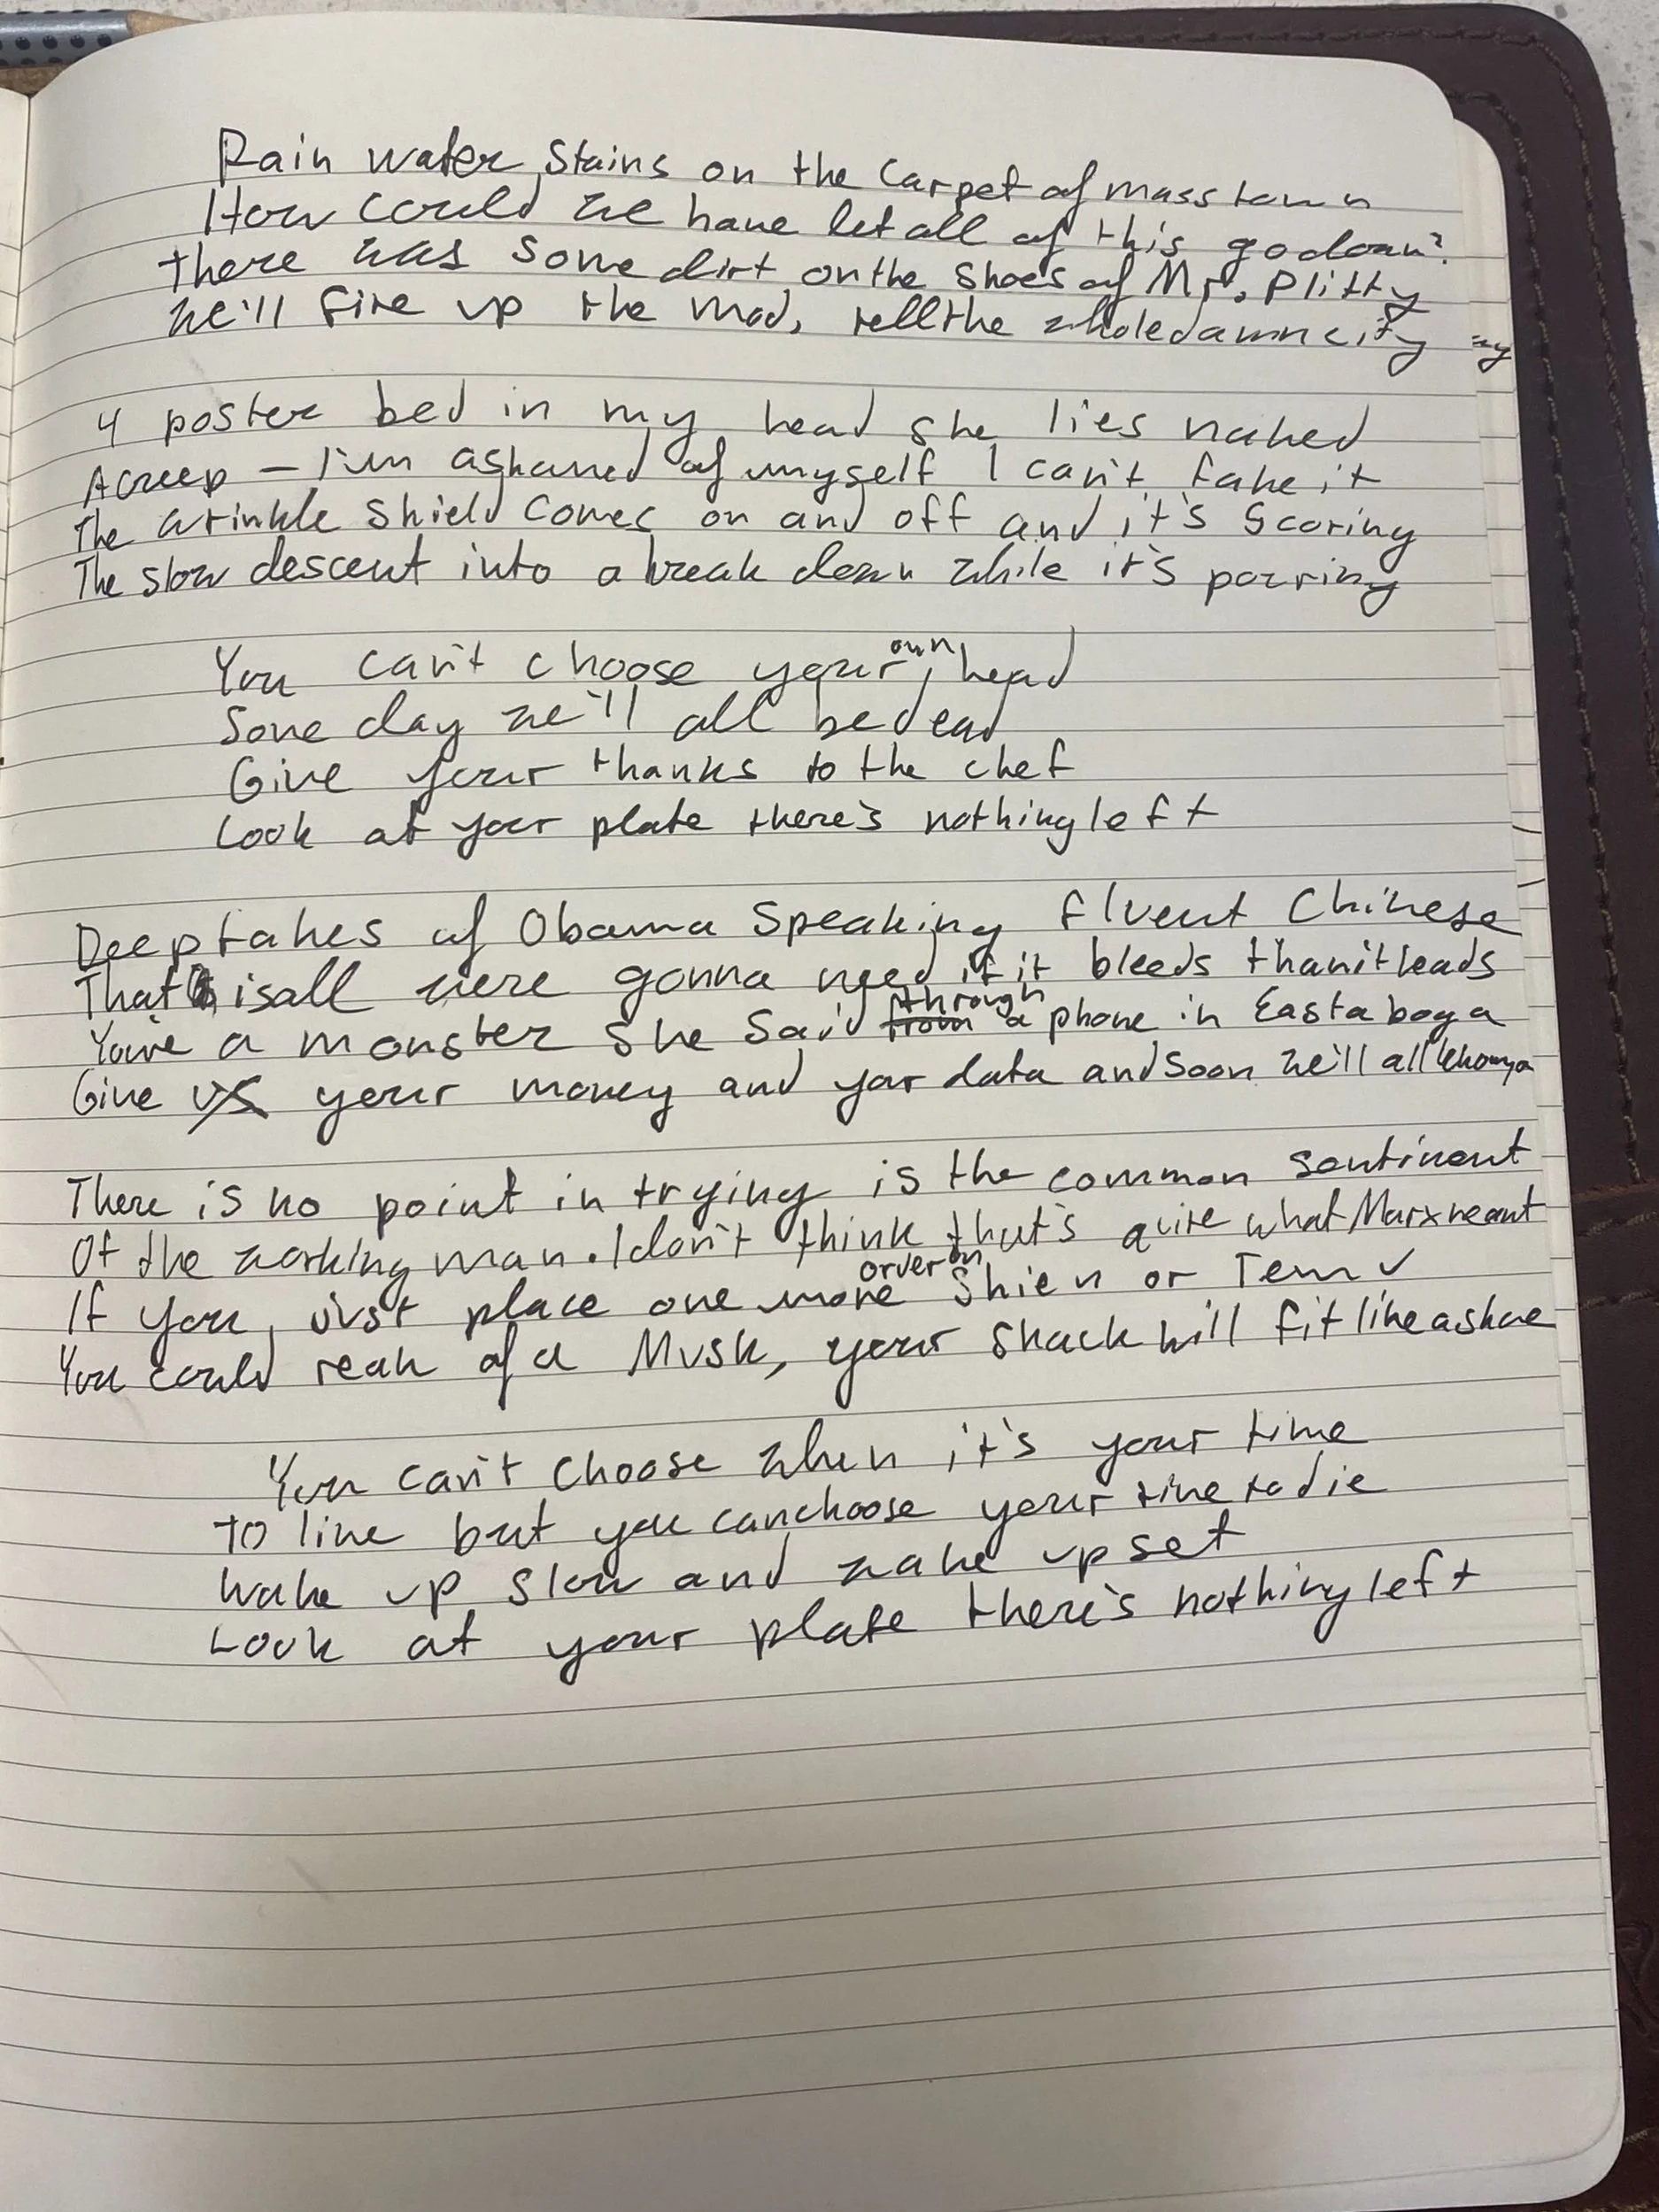 Rain water stains on the carpet of mass town
How could we have let all of this go down?
There was some dirt on the shoes of Mr. Plitty
We'll fire up the mod, tell the whole damn city
4 poster bed in my head she lies naked
A creep – I'm ashamed of myself I can't fake it
The wrinkle shield comes on and off and it's scoring
The slow descent into a break down while it's pouring
You can't choose your own head
Some day we'll all be dead
Give your thanks to the chef
Look at your plate there's nothing left
Deepfakes of Obama speaking fluent Chinese
That is all we're gonna need if it bleeds than it leads
You're a monster she said through a phone in Eastaboga
Give us your money and your data and soon we'll all know ya
There is no point in trying is the common sentiment
Of the working man. I don't think that's quite what Marx meant
If you just place one more order on Shien or Temu
You could reak of a Musk, your shack will fit like a shoe
You can't choose when it's your time
To live but you can choose your time to die
Wake up slow and wake up set
Look at your plate there's nothing left